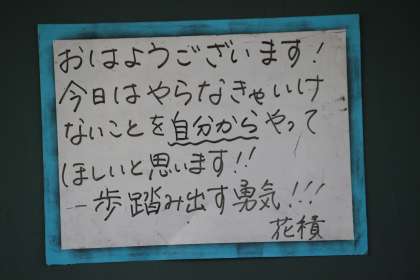 おはようございます!
今日はやらなきゃいけ
ないことを自分からやって
ほしいと思います!!
一歩踏み出す勇気!!!
花積